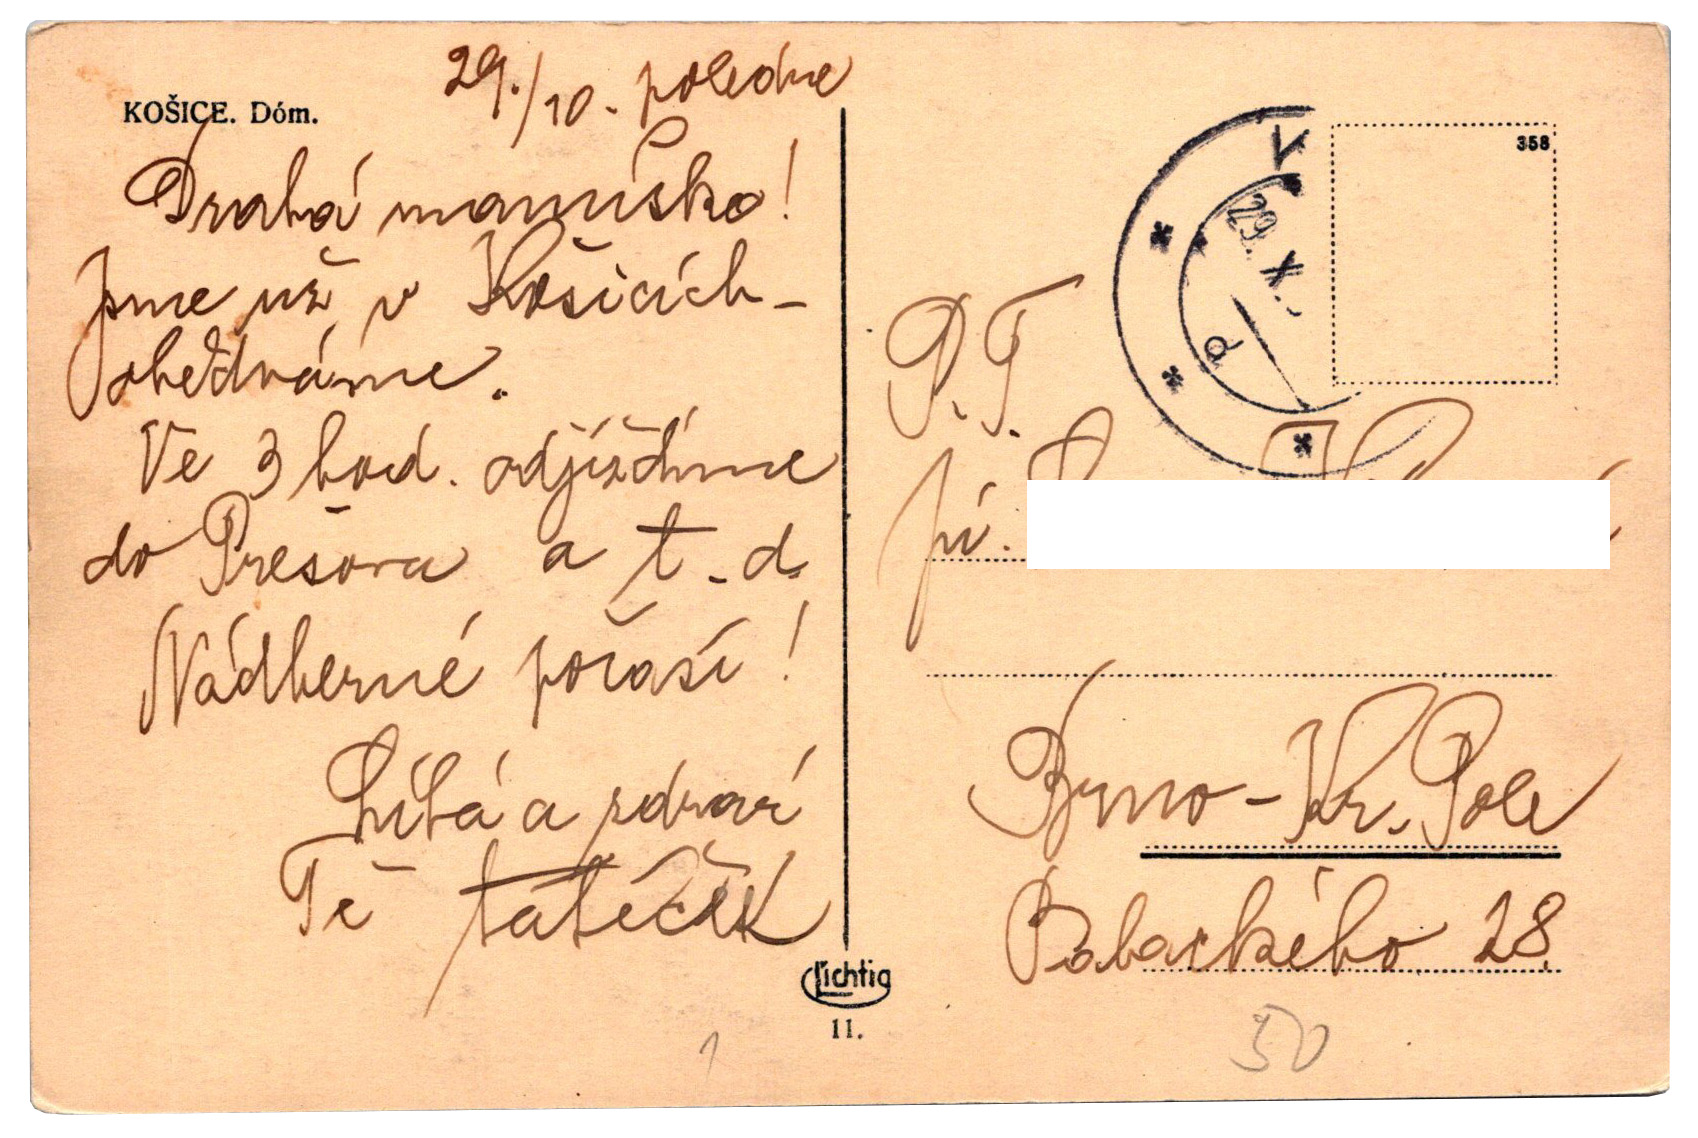 KOŠICE. Dóm.
29./10. poledne
Drahá mamíško!
Jsme už v Košicích -
obědváme.
Ve 3 hod. odjíždíme
do Prešova a t. d.
Nádherné počasí!
Líbá a zdraví
Tě tatíček
Lichtig
11.
358
29. X.
P. T.
pí.
Brno - Kr. Pole
Palackého 28.
50